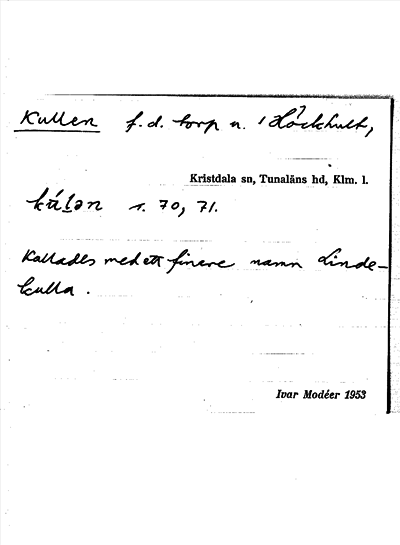 Kullen f.d. torp u. Höckhult,
Kristdala sn, Tunaläns hd, Klm. l.
kúlən s. 70, 71.
Kallades med ett finere namn Linde-
kulla.
Ivar Modéer 1953